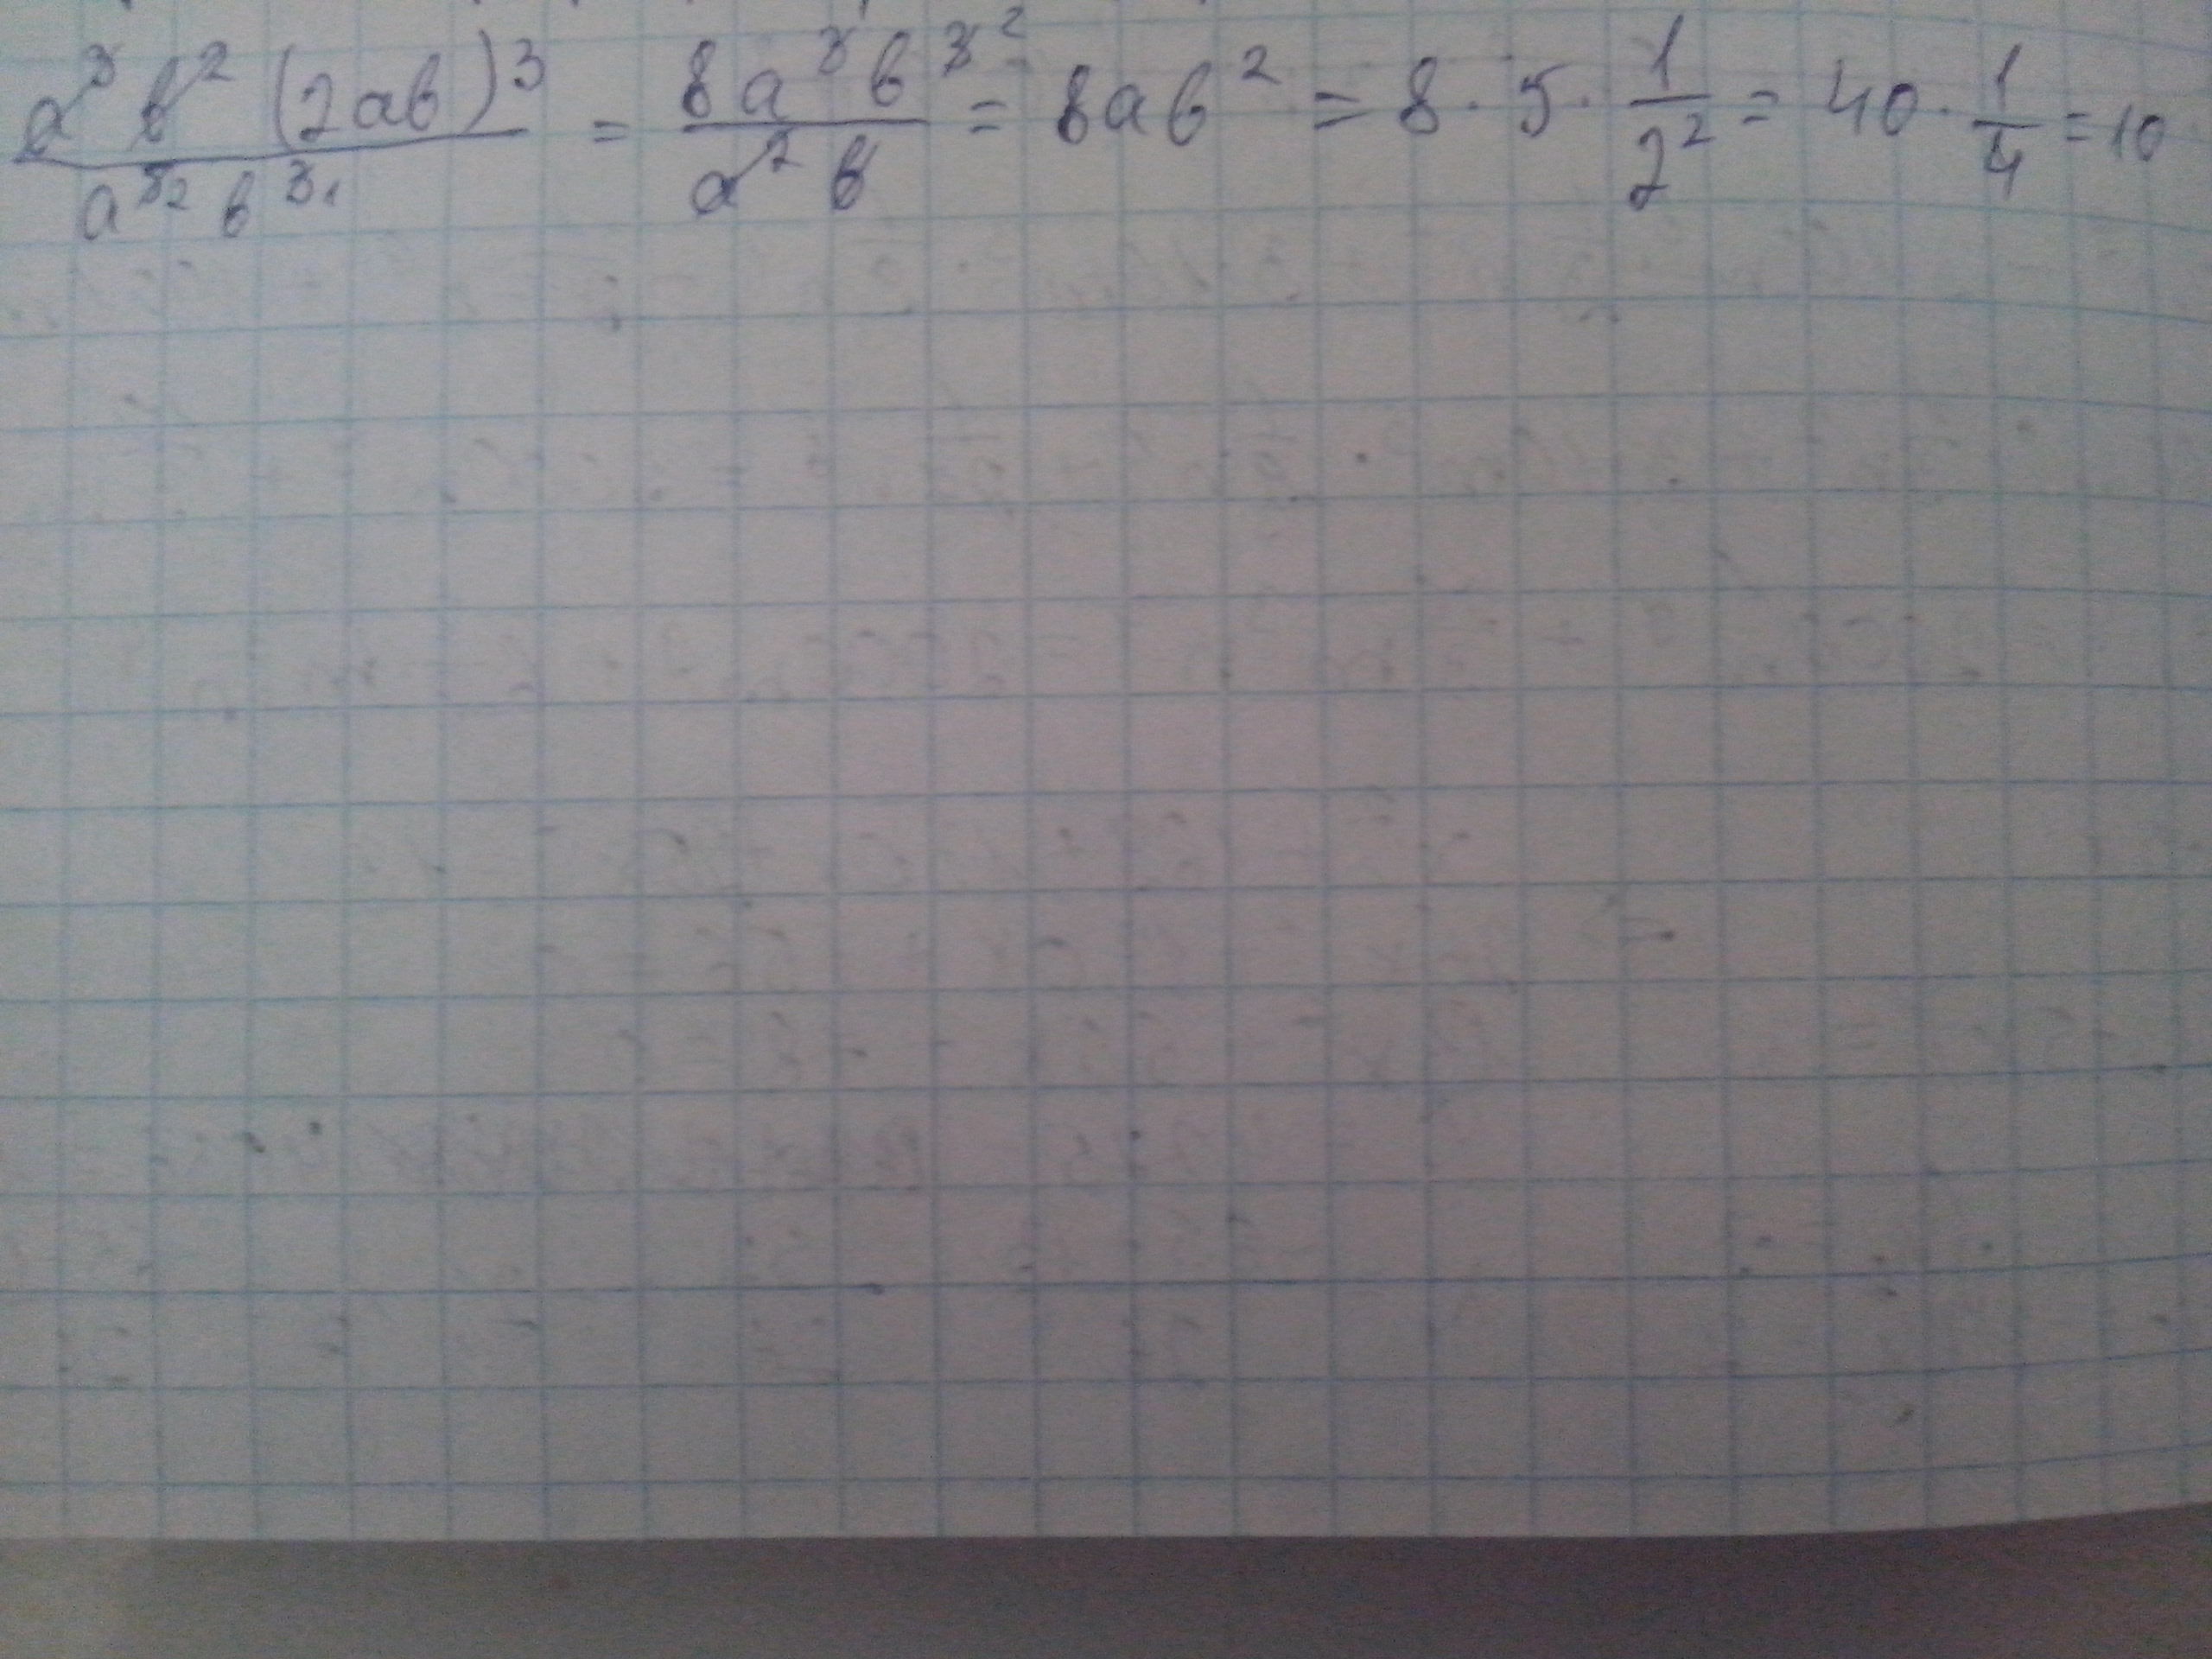 a³ b² (2ab)³ / a⁵² b³¹ = 8a³ b³² / a² b = 8ab² = 8 · 5 · 1/2² = 40 · 1/4 = 10